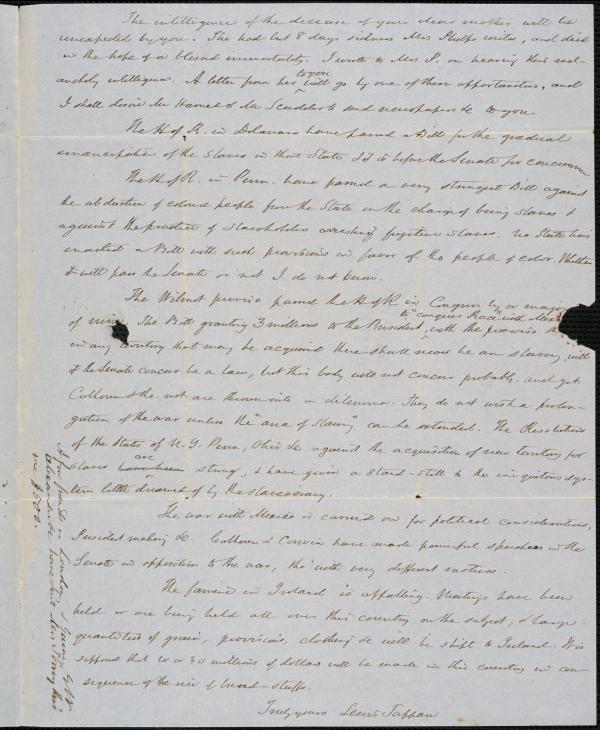 The intelligence of the decease of your dear mother will be
unexpected by you. She had but 8 days sickness Mrs Phelps writes, and died
in the hope of a blessed immortality. I wrote to Mrs P. on hearing this mel-
ancholy intelligence. A letter from her to you will go by one of these opportunities, and
I shall desire Mr Harned & Mr Scudder to send newspapers &c to you.
The H of R. in Delaware have passed a Bill for the gradual
emancipation of the slaves in that State. It is before the Senate for concurrence
The H of R. in Penn. have passed a very stringent Bill against
the abduction of colored people from the State on the charge of being slaves &
against the practice of slaveholders arresting fugitive slaves. No State has
enacted a Bill with such provisions in favor of the people of color. Whether
it will pass the Senate or not I do not know.
The Wilmot proviso passed the H of R in Congress by a major
of nine. The Bill granting 3 millions to the President to "conquer Peace" with Mexico with the proviso
in any territory that may be acquired there shall never be any slavery, will
if the Senate concur be a law, but this body will not concur probably. And yet
Calhoun & the rest are thrown into a dilemma. They do not wish a prolon-
gation of the war unless the "area of slavery" can be extended. The Resolutions
of the States of N. Y. Penn, Ohio &c against the acquisition of new territory for
slaves are strong, & have given a stand-still to the iniquitous sys-
tem little dreamed of by the slaveocracy.
The war with Mexico is carried on for political considerations,
President making &c. Calhoun & Corwin have made powerful speeches in the
Senate in opposition to the war, tho' with very different motives.
The famine in Ireland is appalling. Meetings have been
held or are being held all over this country on the subject, & large
quantities of grain, provisions, clothing &c will be shipt to Ireland. It is
supposed that 20 or 30 millions of dollars will be made in this country in con-
sequence of the rise of bread-stuffs.
Truly yours Lewis Tappan
A few friends in London
me $500.